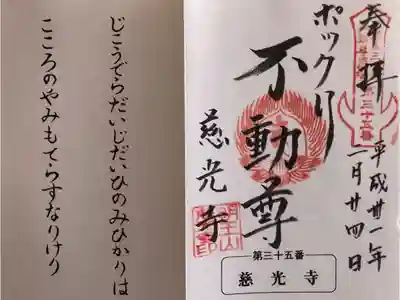 奉拝
平成卅一年
一月廿四日
三十五番
ポックリ
不動尊
慈光寺
第三十五番
慈光寺
じこうでらだいじだいひのみひかりは
こころのやみもてらすなりけり